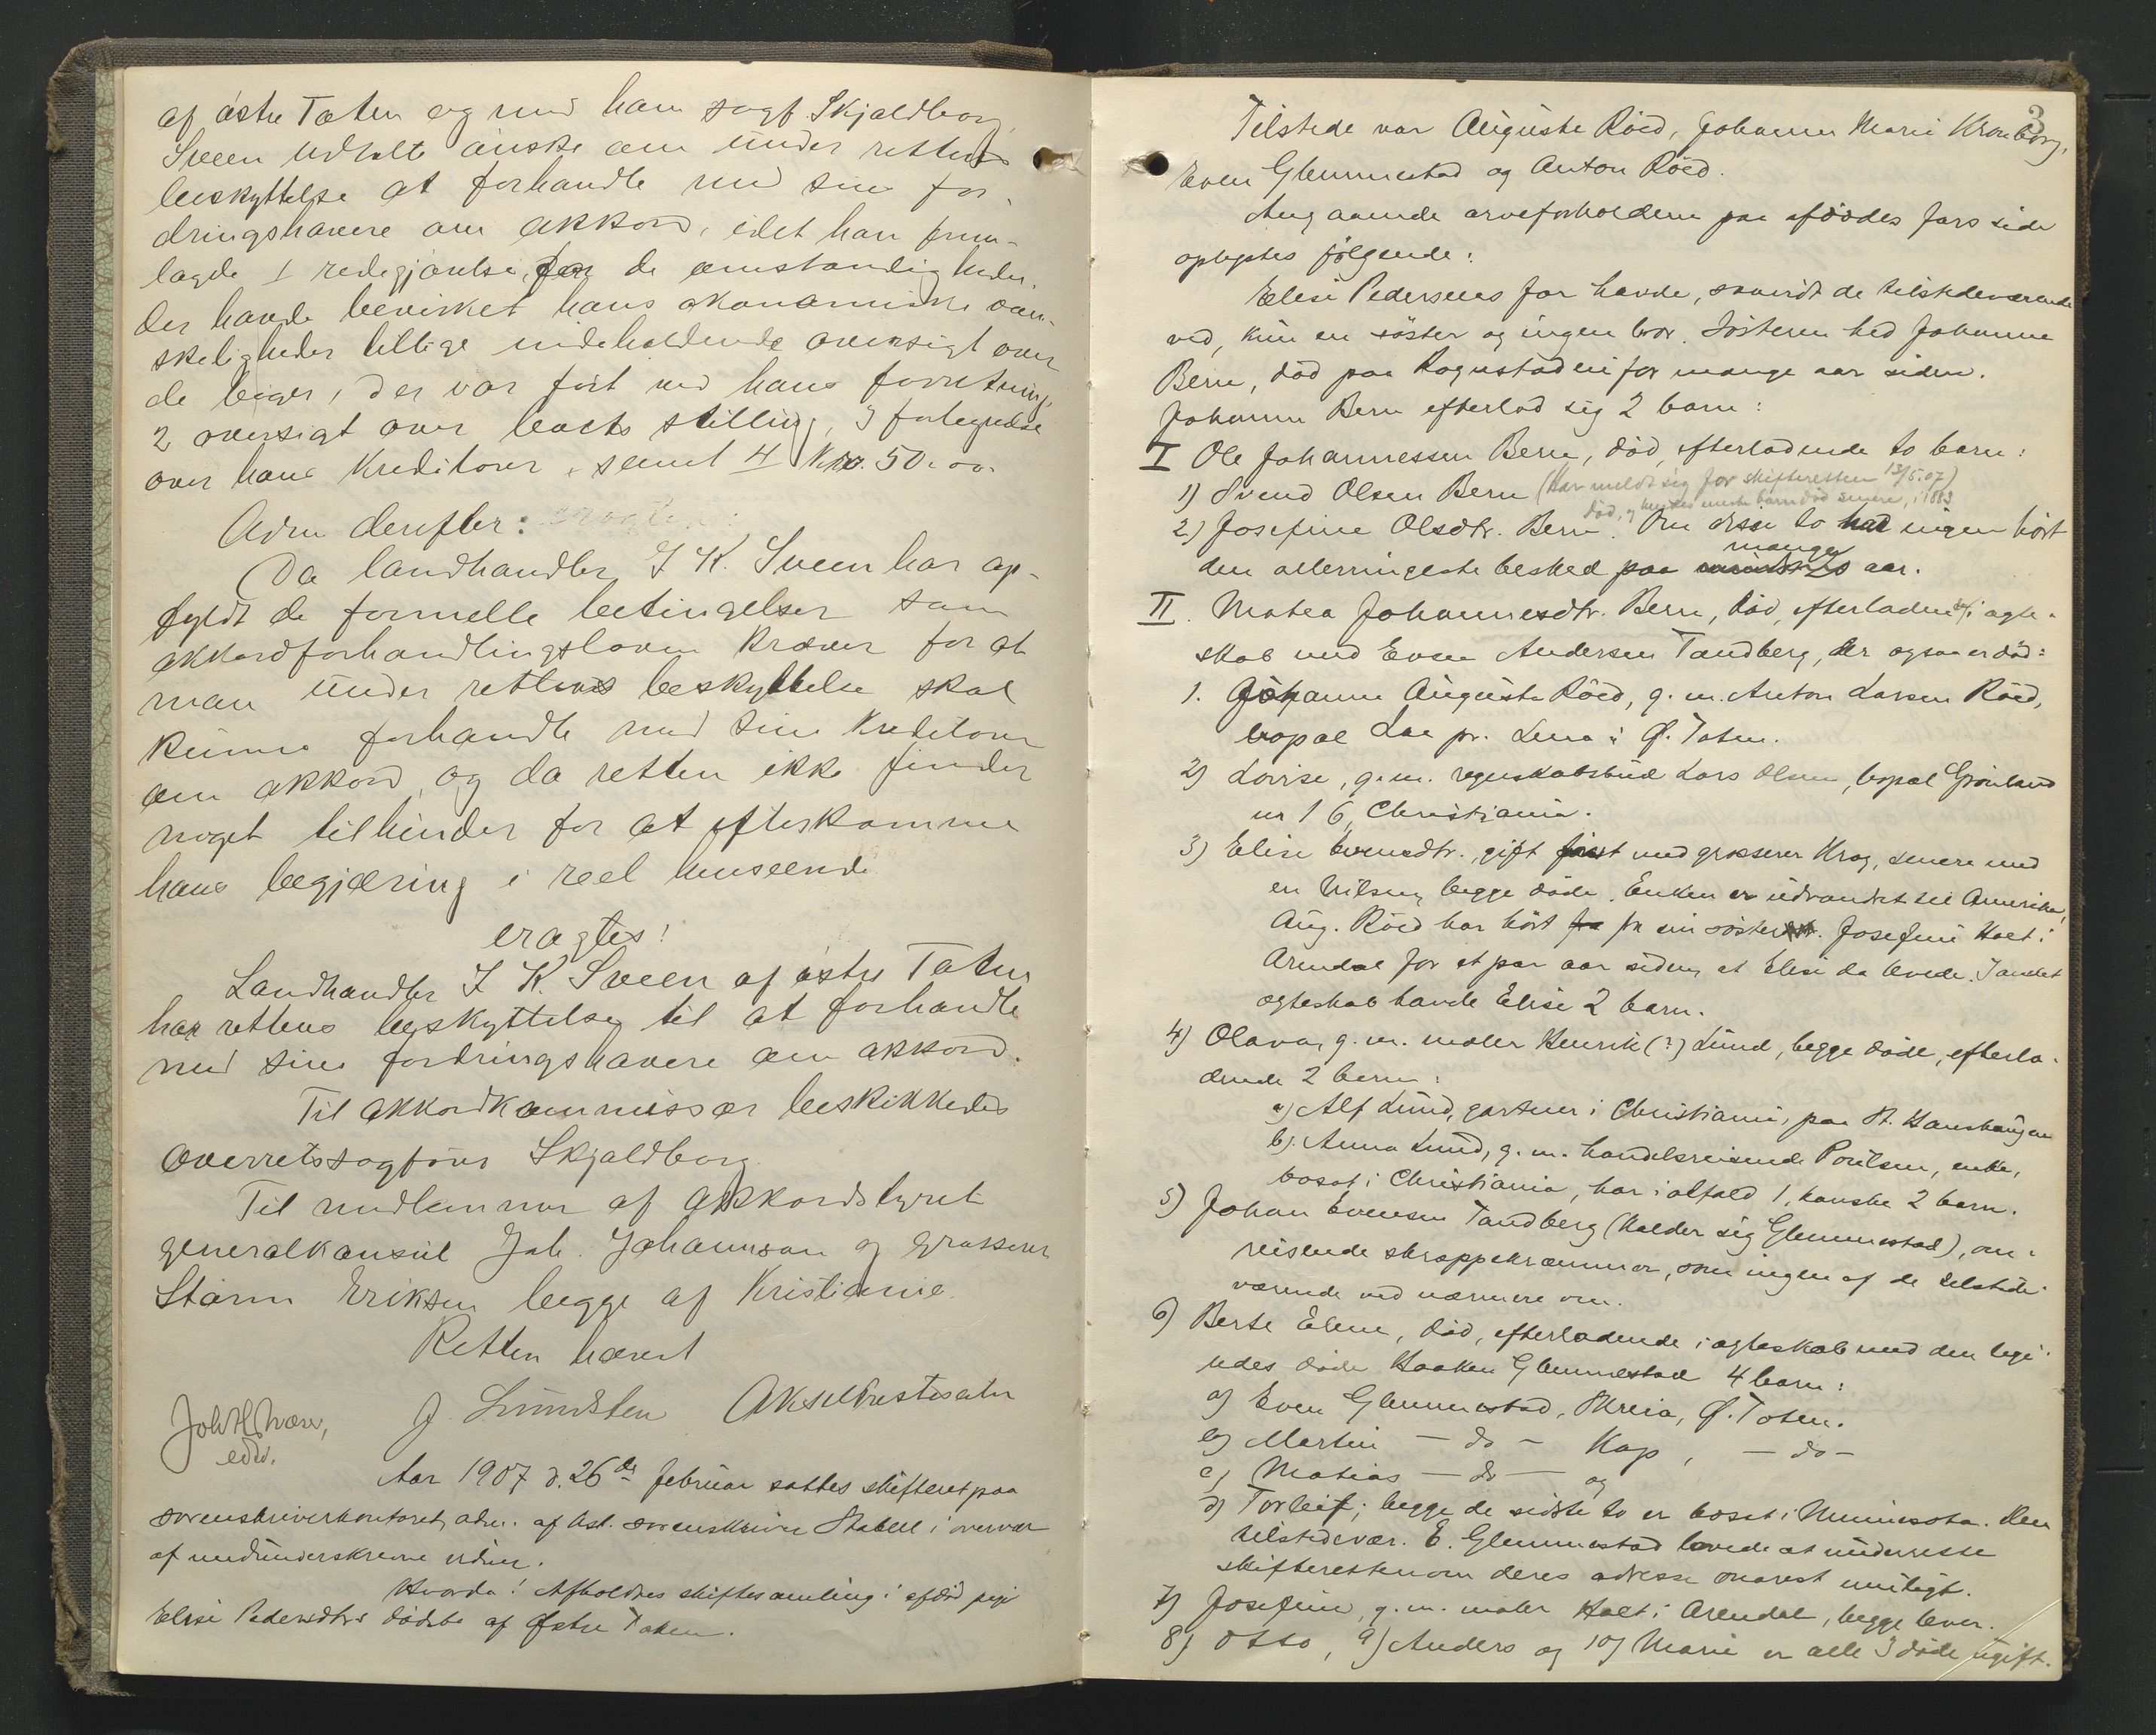 af østre Toten og med ham sagf. Skjoldborg.
Sveen udtalte ønske om under rettens
beskyttelse at forhandle med sine for-
dringshavere om akkord, idet han frem-
lagde 1 redegjørelse for de omstændigheder,
der havde bevirket hans økonomiske van-
skeligheder tillige indeholdende oversigt over
de bøger, der var ført ved hans forretning,
2 oversigt over boets stilling, 3 fortegnelse
over hans kreditorer, samt 4 Kr. 50.00.
Adm derefter:
Da landhandler J K. Sveen har op-
fyldt de formelle betingelser som
akkordforhandlingsloven kræver for at
man under rettens beskyttelse skal
kunne forhandle med sine kreditorer
om akkord, og da retten ikke finder
noget til hinder for at efterkomme
hans begjæring i reel henseende
eragtes:
Landhandler J K. Sveen af østre Toten
har rettens beskyttelse til at forhandle
med sine fordringshavere om akkord.
Til akkordkommissær beskikkedes
overretssagfører Skjoldborg
Til medlemmer af akkordstyret
generalkonsul Joh. Johannson og grosserer
Størm Eriksen begge af Kristiania.
Retten hævet
J. Lundsten Aksel
edsv.
Aar 1907 d. 26de februar sattes skifteret paa
sorenskriverkontoret, adm. af kst. sorenskriver Stabell i overvær
af medunderskrevne vidner.
Hvorda: Afholdtes skiftesamling i afdød pige
Elise Pedersdtrs dødsbo af Østre Toten.
3
Tilstede var Auguste Röed, Johanne Marie Kronborg,
Even Glemmestad og Anton Röed.
Angaaende arveforholdene paa afdödes fars side
oplystes fölgende:
Elise Pedersens far havde, saavidt de tilstedeværende
ved, kun en söster og ingen bror. Søsteren hed Johanne
Bern, död paa Rognstadeie for mange aar siden.
Johanne Bern efterlod sig 2 barn:
I Ole Johannessen Bern, död, efterladende to barn:
1) Svend Olsen Bern (Har meldt sig for skifteretten 13/5.07)
död, og hendes eneste barn död senere, i 1883
2) Josefine Olsdtr. Bern. Om disse to had ingen hört
mange
den allerringeste besked paa mindst 20 aar.
II. Matea Johannesdtr. Bern, död, efterladende i ægte-
skab med Even Andersen Tandberg, der ogsaa er död:
1. Johanne Auguste Röed, g. m. Anton Larsen Röed,
bopæl Laa pr. Lena i Ø. Toten.
2) Lovise, g. m. regnskabsbud Lars Olsen, bopæl Grönland
nr 16, Christiania.
3) Elise Evensdtr., gift först med grosserer Krog, senere med
en Nilsen, begge döde. Enken er udvandret til Amerika,
Aug. Röed har hört fra fr sin söster Josefine Holt i
Arendal for et par aar siden, at Elise da levede. I andet
ægteskab havde Elise 2 barn.
4) Olava, g. m. maler Henrik (?) Lund, begge döde, efterla-
dende 2 barn:
a) Alf Lund, gartner i Christiania, paa St. Hanshaugen
b) Anna Lund, g. m. handelsreisende Poulsen, enke,
bosat i Christiania, har ialfald 1, kanske 2 barn.
5) Johan Evensen Tandberg (kalder sig Glemmestad), om-
reisende skræppekræmmer, som ingen af de tilstede-
værende ved nærmere om.
6) Berte Elene, död, efterladende i ægteskab med den lige-
ledes döde Haaken Glemmestad 4 barn:
a) Even Glemmestad, Skreia, Ø. Toten.
b) Martin - do - Kap, - do -
c) Matias - do - og
d) Torleif; begge de sidste to er bosat i Minnesota. Den
tilstedevær. E. Glemmestad lovede at underrette
skifteretten om deres adresse snarest muligt.
7) Josefine, g. m. maler Holt i Arendal, begge lever.
8) Otto, 9) Anders og 10) Marie er alle 3 döde ugift.